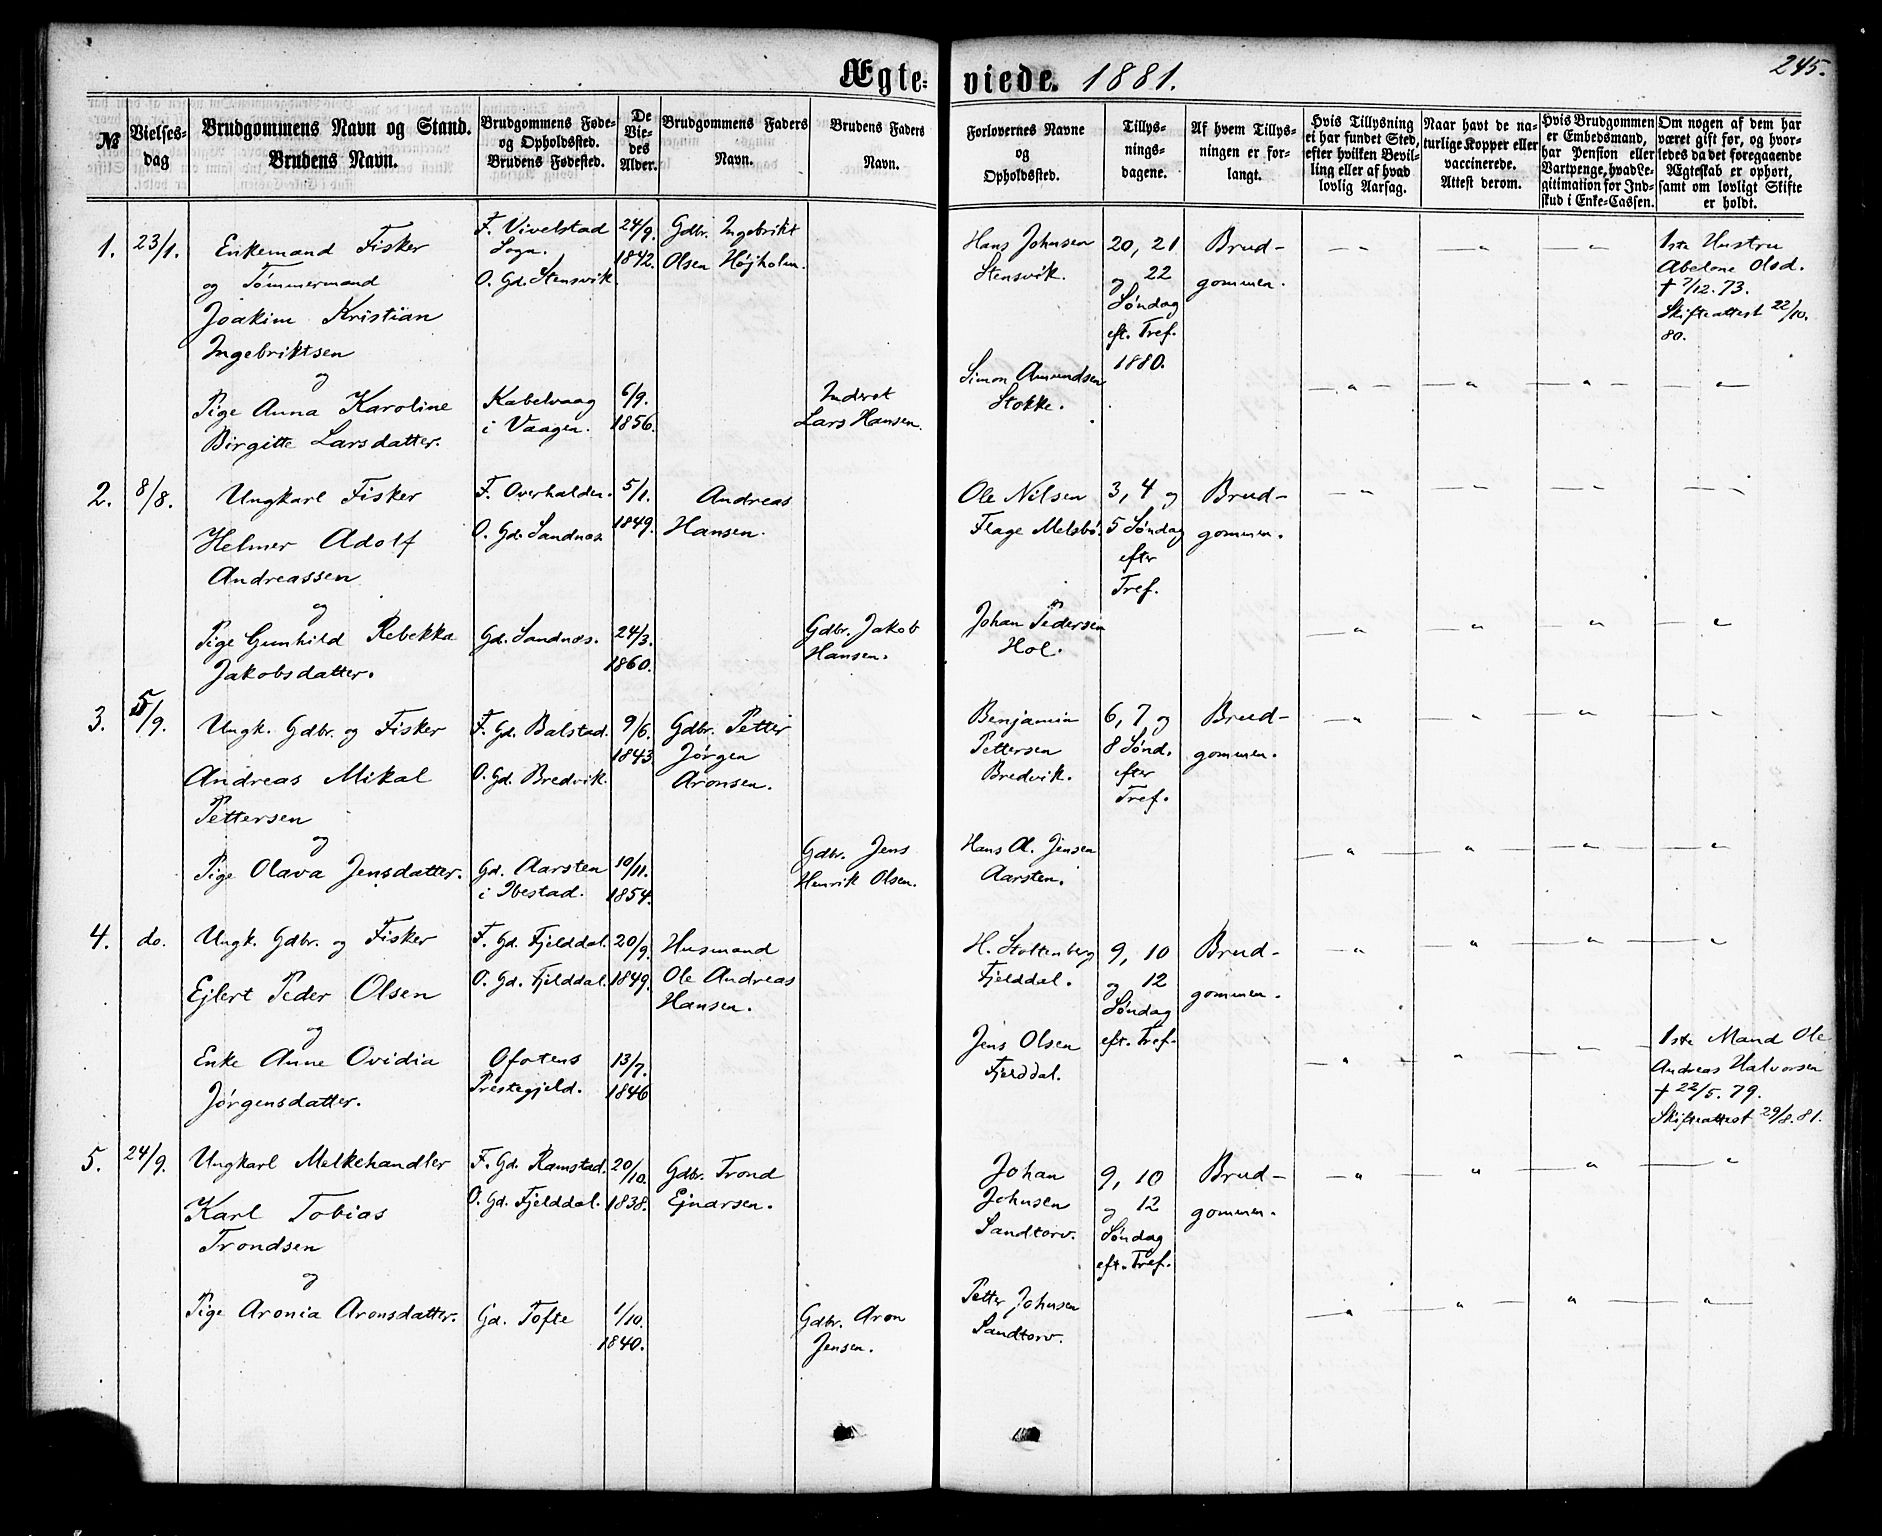 Ægte- viede. 1881. 245.
№
Vielses-
dag
Brudgommens Navn og Stand.
Brudens Navn.
Brudgommens Føde-
og Opholdssted.
Brudens Fødested.
De
Vie-
des
Alder.
Brudgommens Faders
Navn.
Brudens Faders
Navn.
Forlovernes Navne
og
Opholdssted.
Tillys-
nings-
dagene.
Af hvem Tillys-
ningen er for-
langt.
Hvis Tillysning
ei har fundet Sted,
efter hvilken Bevil-
ling eller af hvad
lovlig Aarsag.
Naar havt de na-
turlige Kopper eller
vaccinerede.
Attest derom.
Hvis Brudgommen
er Embedsmand,
har Pension eller
Vartpenge, hvad Le-
gitimation for Ind-
skud i Enke-Cassen.
Om nogen af dem har
været gift før, og hvor-
ledes da det foregaaende
Ægteskab er ophørt,
samt om lovligt Skifte
er holdt.
1. 23/1.
Enkemand Fisker
og Tømmermand
Joakim Kristian
Ingebriktsen
og
Pige Anna Karoline
Birgitte Larsdatter.
F. Vivelstad
Sogn.
O. Gd. Stensvik.
Kabelvaag
i Vaagen.
24/9.
1842.
6/9.
1856.
Gdbr. Ingebrikt
Olsen Højholm.
Inderst
Lars Hansen.
Hans Johnsen
Stensvik.
Simon Amundsen
Stokke.
20, 21
og 22
Søndag
eft. Tref.
1880.
Brud-
gommen.
1ste Hustru
Abelone Olsd.
† 7/12. 73.
Skifteattest 22/10.
80.
2. 8/8.
Ungkarl Fisker
Helmer Adolf
Andreassen
og
Pige Gunhild Rebekka
Jakobsdatter.
F. Overhalden.
O. Gd. Sandnes.
Gd. Sandnes.
5/1.
1849.
24/3.
1860.
Andreas
Hansen.
Gdbr. Jakob
Hansen.
Ole Nilsen
Flage Melsbø.
Johan Pedersen
Hol.
3, 4 og
5 Søndag
efter
Tref.
Brud-
gommen.
3. 5/9.
Ungk. Gdbr. og Fisker
Andreas Mikal
Pettersen
og
Pige Olava Jensdatter.
F. Gd. Balstad.
O. Gd. Bredvik.
Gd. Aarsten
i Ibestad.
9/6.
1843
19/11.
1854.
Gdbr. Petter
Jørgen
Aronsen.
Gdbr. Jens
Henrik Olsen.
Benjamin
Pettersen
Bredvik.
Hans A. Jensen
Aarsten.
6, 7 og
8 Sønd.
efter
Tref.
Brud-
gommen.
4. do.
Ungk. Gdbr. og Fisker
Ejlert Peder Olsen
og
Enke Anne Ovidia
Jørgensdatter.
F. Gd. Fjelddal.
O. Gd. Fjelddal.
Ofotens
Prestegjeld.
20/9.
1849.
13/7.
1846
Husmand
Ole Andreas
Hansen.
H. Stoltenberg
Fjelddal.
Jens Olsen
Fjelddal.
9, 10
og 12
Søndag
eft. Tref.
Brud-
gommen.
1ste Mand Ole
Andreas Halvorsen
† 22/5. 79.
Skifteattest 29/8. 81.
5. 24/9.
Ungkarl Melkehandler
Karl Tobias
Trondsen
og
Pige Aronia Aronsdatter.
F. Gd. Ramstad.
O. Gd. Fjelddal.
Gd. Tofte
20/10.
1838.
1/10.
1840.
Gdbr. Trond
Ejnarsen.
Gdbr. Aron
Jensen.
Johan
Johnsen
Sandtorv.
Petter Johnsen
Sandtorv.
9, 10
og 12
Søndag
eft. Tref.
Brud-
gommen.